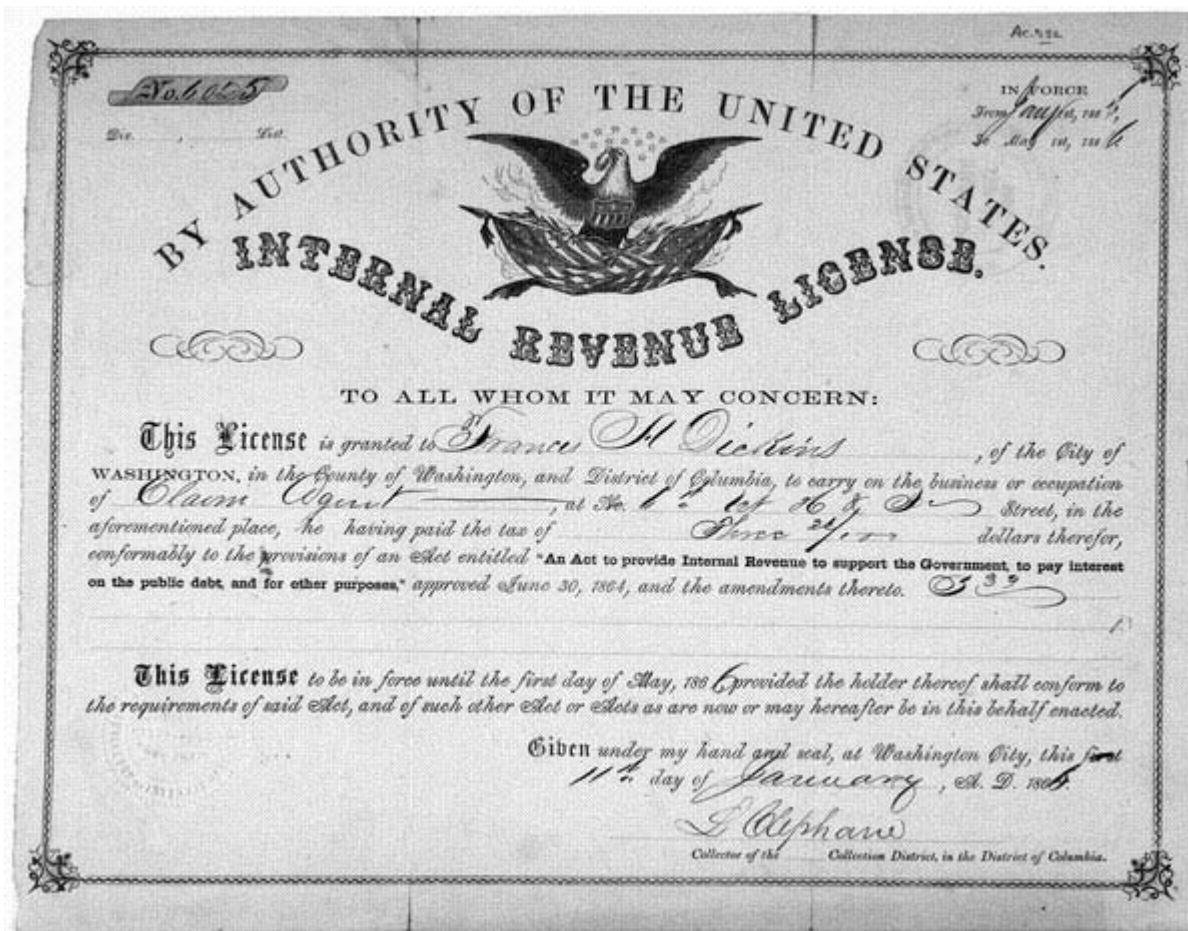 Ac.
No. 6025
IN FORCE
From Jany 1st, 186
To May 1st, 1866
Div. , List.
BY AUTHORITY OF THE UNITED STATES.
INTERNAL REVENUE LICENSE.
TO ALL WHOM IT MAY CONCERN:
This License is granted to Frances H Dickins , of the City of
WASHINGTON, in the County of Washington, and District of Columbia, to carry on the business or occupation
of Claim Agent , at No. Street, in the
aforementioned place, he having paid the tax of Three dollars therefor,
conformably to the provisions of an Act entitled "An Act to provide Internal Revenue to support the Government, to pay interest
on the public debt, and for other purposes," approved June 30, 1864, and the amendments thereto.
This License to be in force until the first day of May, 1866 provided the holder thereof shall conform to
the requirements of said Act, and of such other Act or Acts as are now or may hereafter be in this behalf enacted.
Given under my hand and seal, at Washington City, this first
11th day of January , A. D. 1866.
L Clephane
Collector of the Collection District, in the District of Columbia.